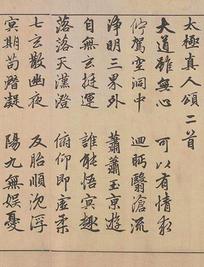 太極真人頌二首
大道雖無心 可以有情求
佇駕空洞中 迴眄翳滄流
淨明三界外 蕭蕭玉京遊
自無玄挺運 誰能悟冥趣
落落天漢澄 俯仰即虛柔
七玄散幽夜 反胎順沉浮
冥期苟潛凝 陽九無虞憂